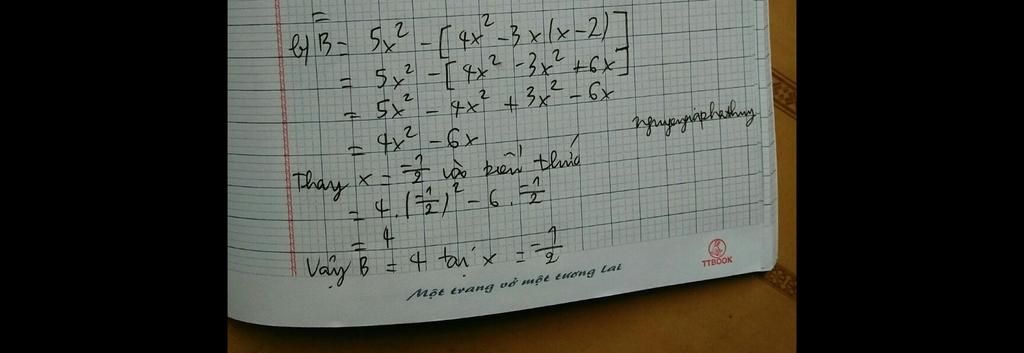 =
b) B = 5x² - [4x² - 3x(x-2)]
= 5x² - [4x² - 3x² + 6x]
= 5x² - 4x² + 3x² - 6x
= 4x² - 6x
nguyengiaphathuy
Thay x = -1/2 vào biểu thức
= 4.(-1/2)² - 6.-1/2
= 4
Vậy B = 4 tại x = -1/2
Một trang vở một tương lai
TTBOOK